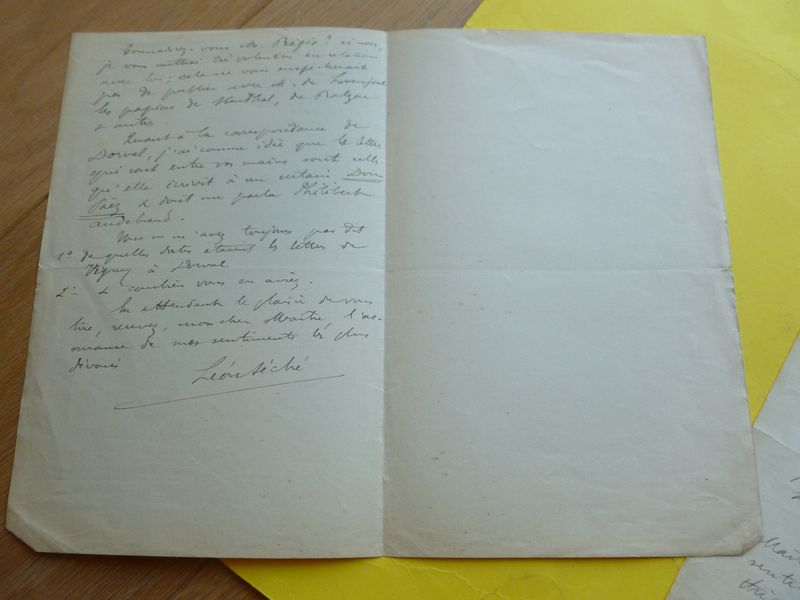 Connaissez-vous M. Régis ? si non,
je vous mettrai très volontiers en relation
avec lui ; cela ne vous empêcherait
pas de publier avec M. de Lovenjoul
les papiers de Stendhal, de Balzac
& autres.
Quant à la correspondance de
Dorval, j'ai comme idée que les lettres
qui sont entre vos mains sont celles
qu'elle écrivit à un certain Dom
Paëz & dont me parla Philibert
Audebrand.
Vous ne m'avez toujours pas dit
1° de quelles dates étaient les lettres de
Vigny à Dorval
2° & combien vous en aviez.
En attendant le plaisir de vous
lire, recevez, mon cher Maître l'as-
surance de mes sentiments les plus
dévoués
Léon Séché